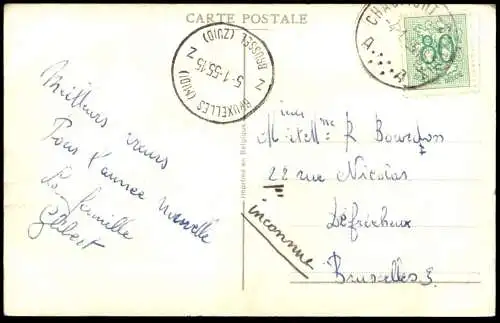 CARTE POSTALE
Meilleurs vœux
Pour l'année nouvelle
La famille
Gilbert
BRUXELLES (MIDI)
Z 5-1-55 15 Z
BRUSSEL (ZUID)
CHAUMONT
A
A
80
Imprimé en Belgique
Mr et Me R Bourdon
22 rue Nicolas
Défrécheux
Bruxelles 3
inconnue